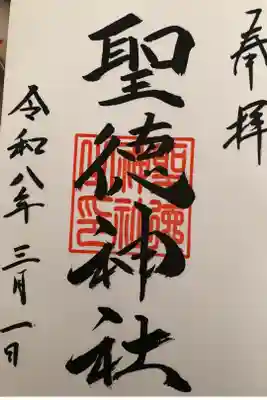 奉拝
聖徳神社
聖徳神社之印
令和八年三月一日